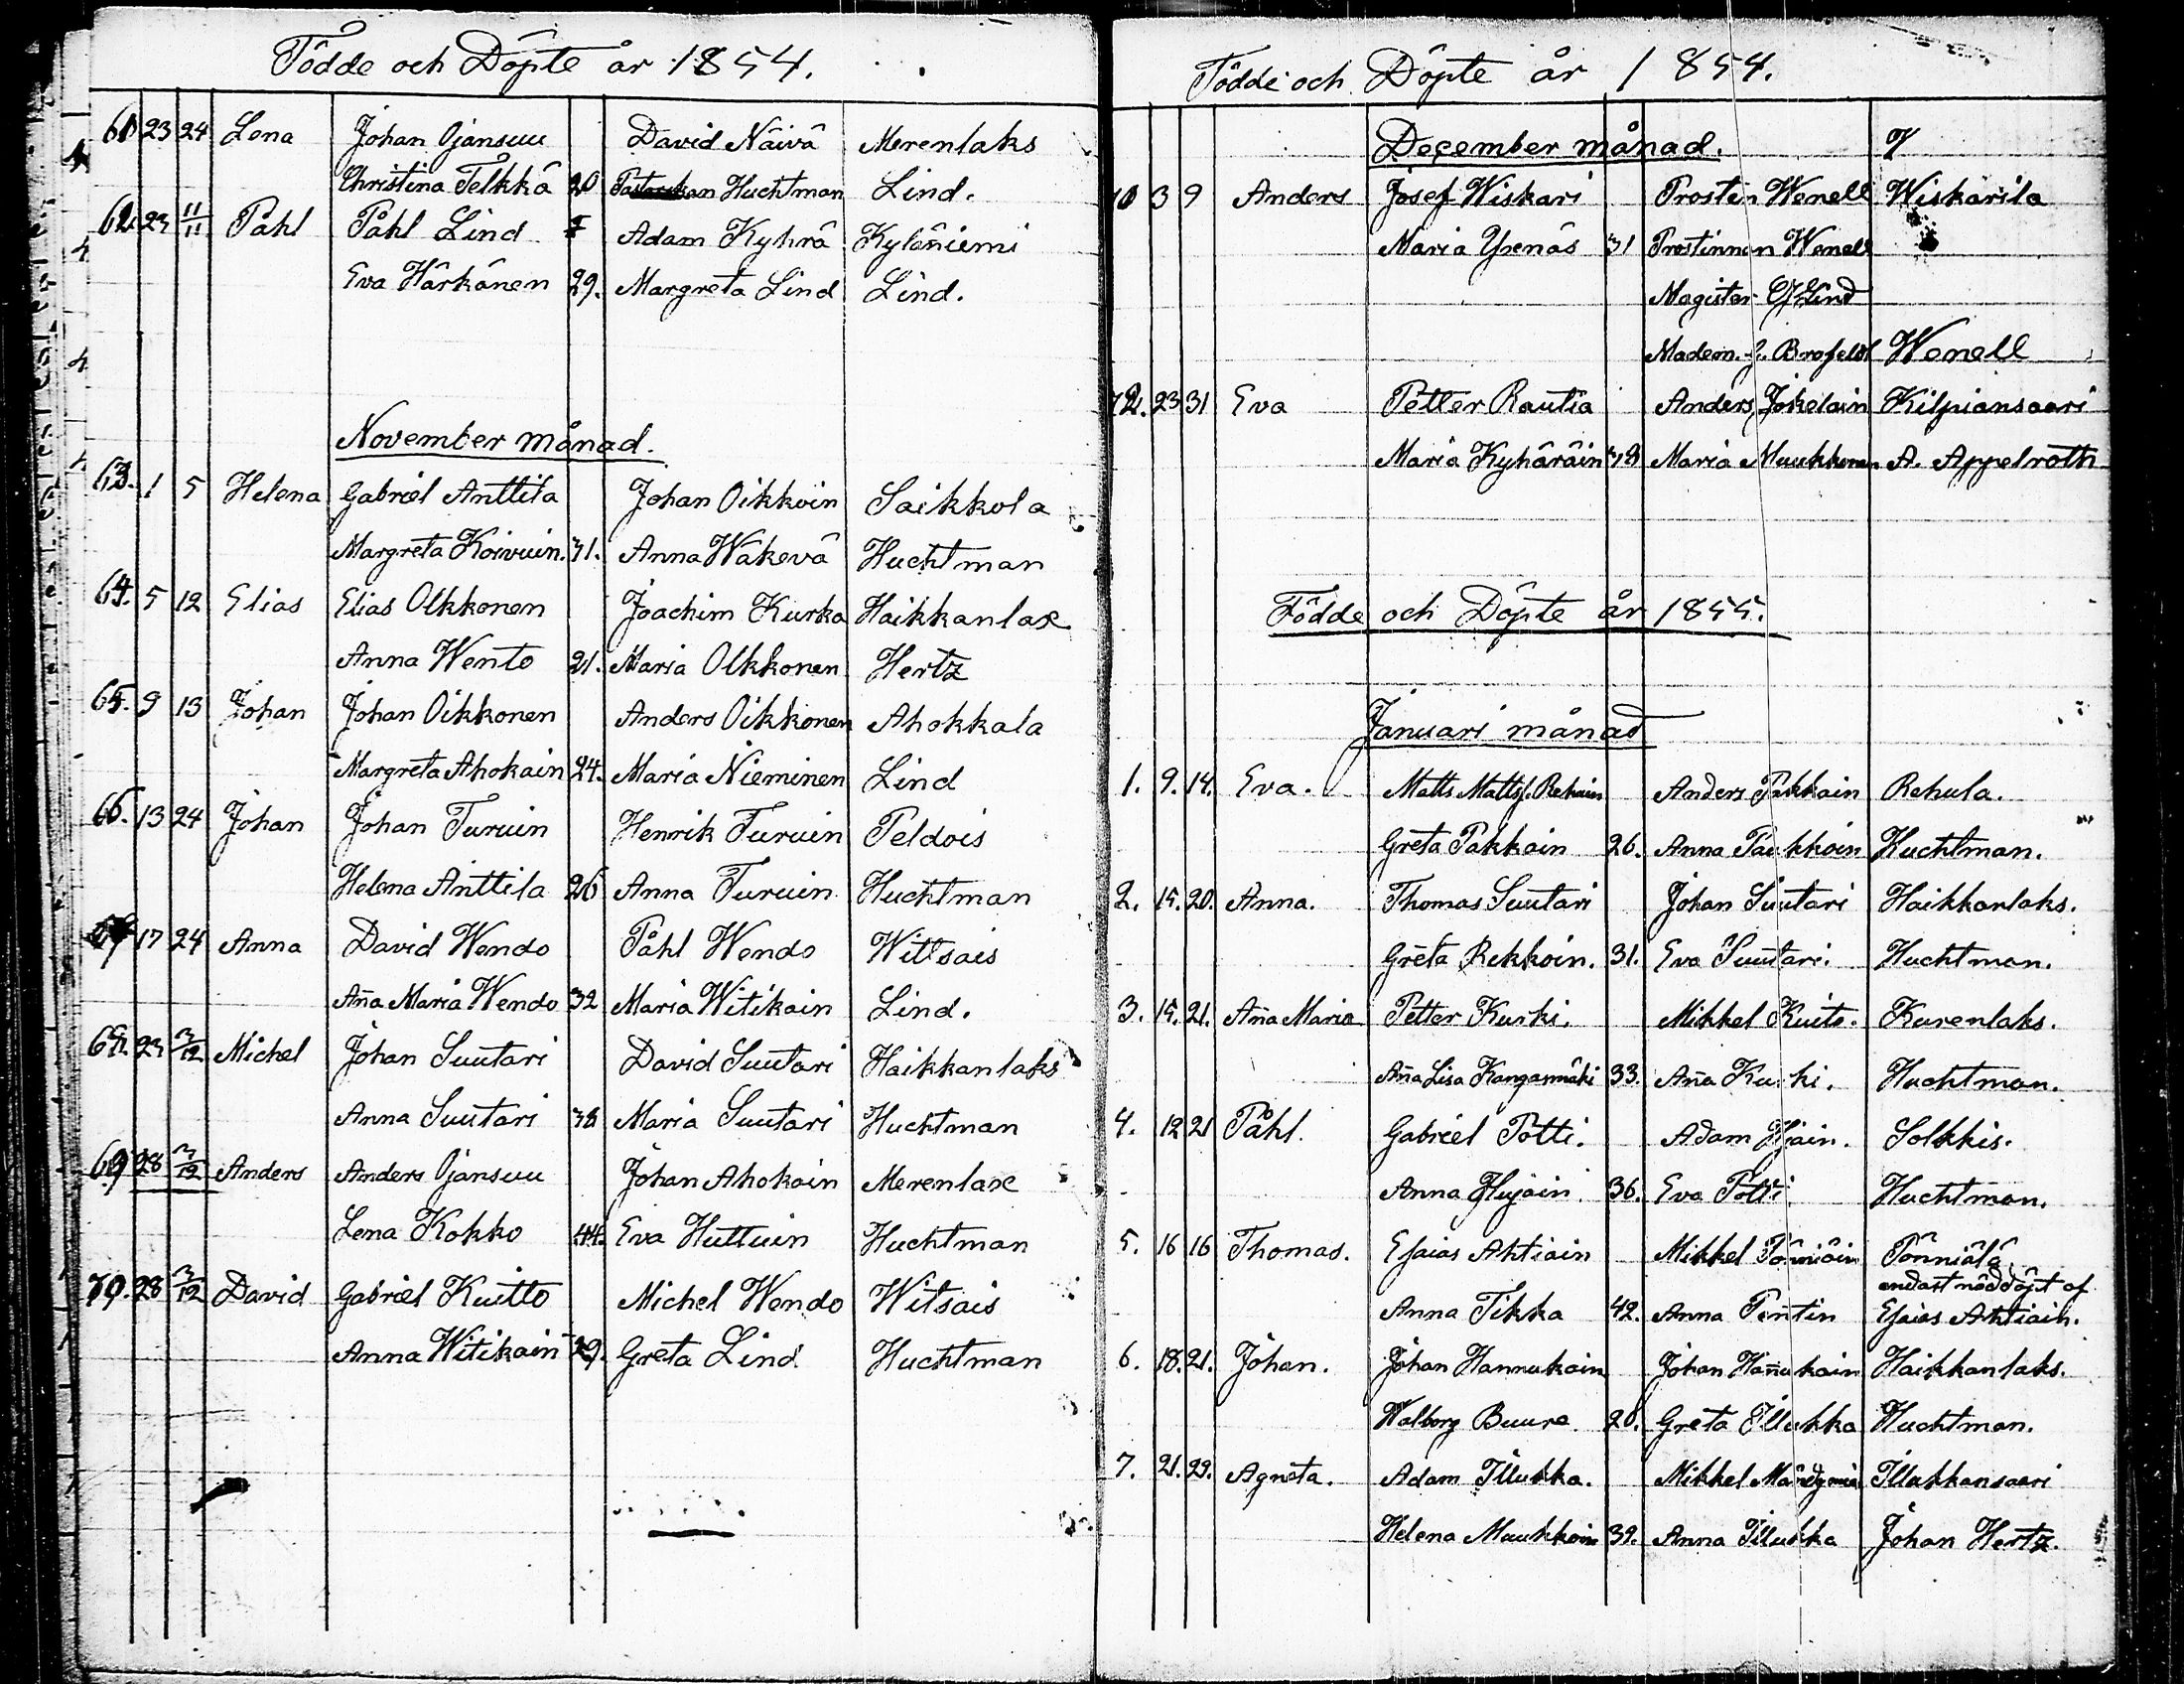 Födde och Döpte år 1854.
61 23 24 Lena Johan Ojansuu David Näivä Merenlaks
Christina Telkkä 20 Huchtman Lind.
62. 23 11/11 Påhl Påhl Lind Adam Kyhrä Kyläniemi
Eva Härkänen 29. Margreta Lind Lind.
November månad.
63. 1 5 Helena Gabriel Anttila Johan Oikkoin Saikkola
Margreta Koivuin. 31. Anna Wäkevä Huchtman
64. 5 12 Elias Elias Olkkonen Joachim Kurka Haikkanlax
Anna Wento 21. Maria Olkkonen Hertz
65. 9 13 Johan Johan Oikkonen Anders Oikkonen Ahokkala
Margreta Ahokain 24. Maria Nieminen Lind
66. 13 24 Johan Johan Turuin Henrik Turuin Peldois
Helena Anttila 26 Anna Turuin Huchtman
17 24 Anna David Wendo Påhl Wendo Wittsais
Aña Maria Wendo 32 Maria Witikain Lind.
23 3/12 Michel Johan Suutari David Suutari Haikkanlaks
Anna Suutari 38 Maria Suutari Huchtman
69 28 3/12 Anders Anders Ojansuu Johan Ahokain Merenlax
Lena Kokko 44. Eva Huttuin Huchtman
70. 28 3/12 David Gabriel Kuitto Michel Wendo Witsais
Anna Witikain 29. Greta Lind Huchtman
Födde och Döpte år 1854.
December månad.
3 9 Anders Josef Wiskari Prosten Wenell Wiskarila
Maria Ypenäs 31 Prostinnan Wenell
Magister Lind
Madem. J. Brofeldt Wenell
72. 23 31 Eva Petter Rautia Anders Jokelain Kilpiansaari
Maria Kyhäräin 38 Maria Muukkonen A. Appelroth
Födde och Döpte år 1855.
Januari månad
1. 9. 14. Eva. Matts Mattsf. Rehuin Anders Pakkain Rehula.
Greta Pakkain 26. Anna Paukkoin Huchtman.
2. 15. 20. Anna. Thomas Suutari Johan Suutari Haikkanlaks.
Greta Rekkoin. 31. Eva Suutari. Huchtman.
3. 15. 21. Aña Maria Petter Kurki. Mikkel Kuito. Kurenlaks.
Aña Lisa Kangasmäki 33. Aña Kurki. Huchtman.
4. 12 21 Påhl. Gabriel Potti. Adam Hjain. Solkkis.
Anna Hujain. 36. Eva Potti Huchtman.
5. 16 16 Thomas. Esaias Ahtiain Mikkel Tönniäin Tönniälä
endast nöddöpt af
Anna Tikka 42. Anna Pentin Esaias Ahtiain.
6. 18. 21. Johan. Johan Hannukain Johan Hañukain Haikkanlaks.
Walborg Buure 28. Greta Illukka Huchtman.
7. 21. 29. Agneta. Adam Illukka. Mikkel Illukkansaari
Helena Muukkoin 39. Anna Illukka Johan Hertz.